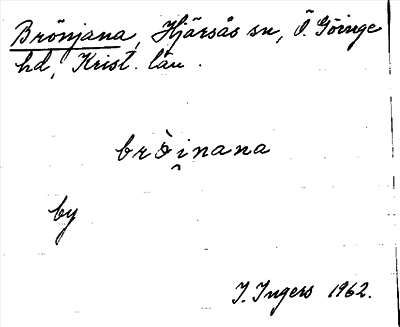 Brönjana, Hjärsås sn, Ö. Göinge
hd, Krist. län.
brò̈i̯nana
by
I. Ingers 1962.